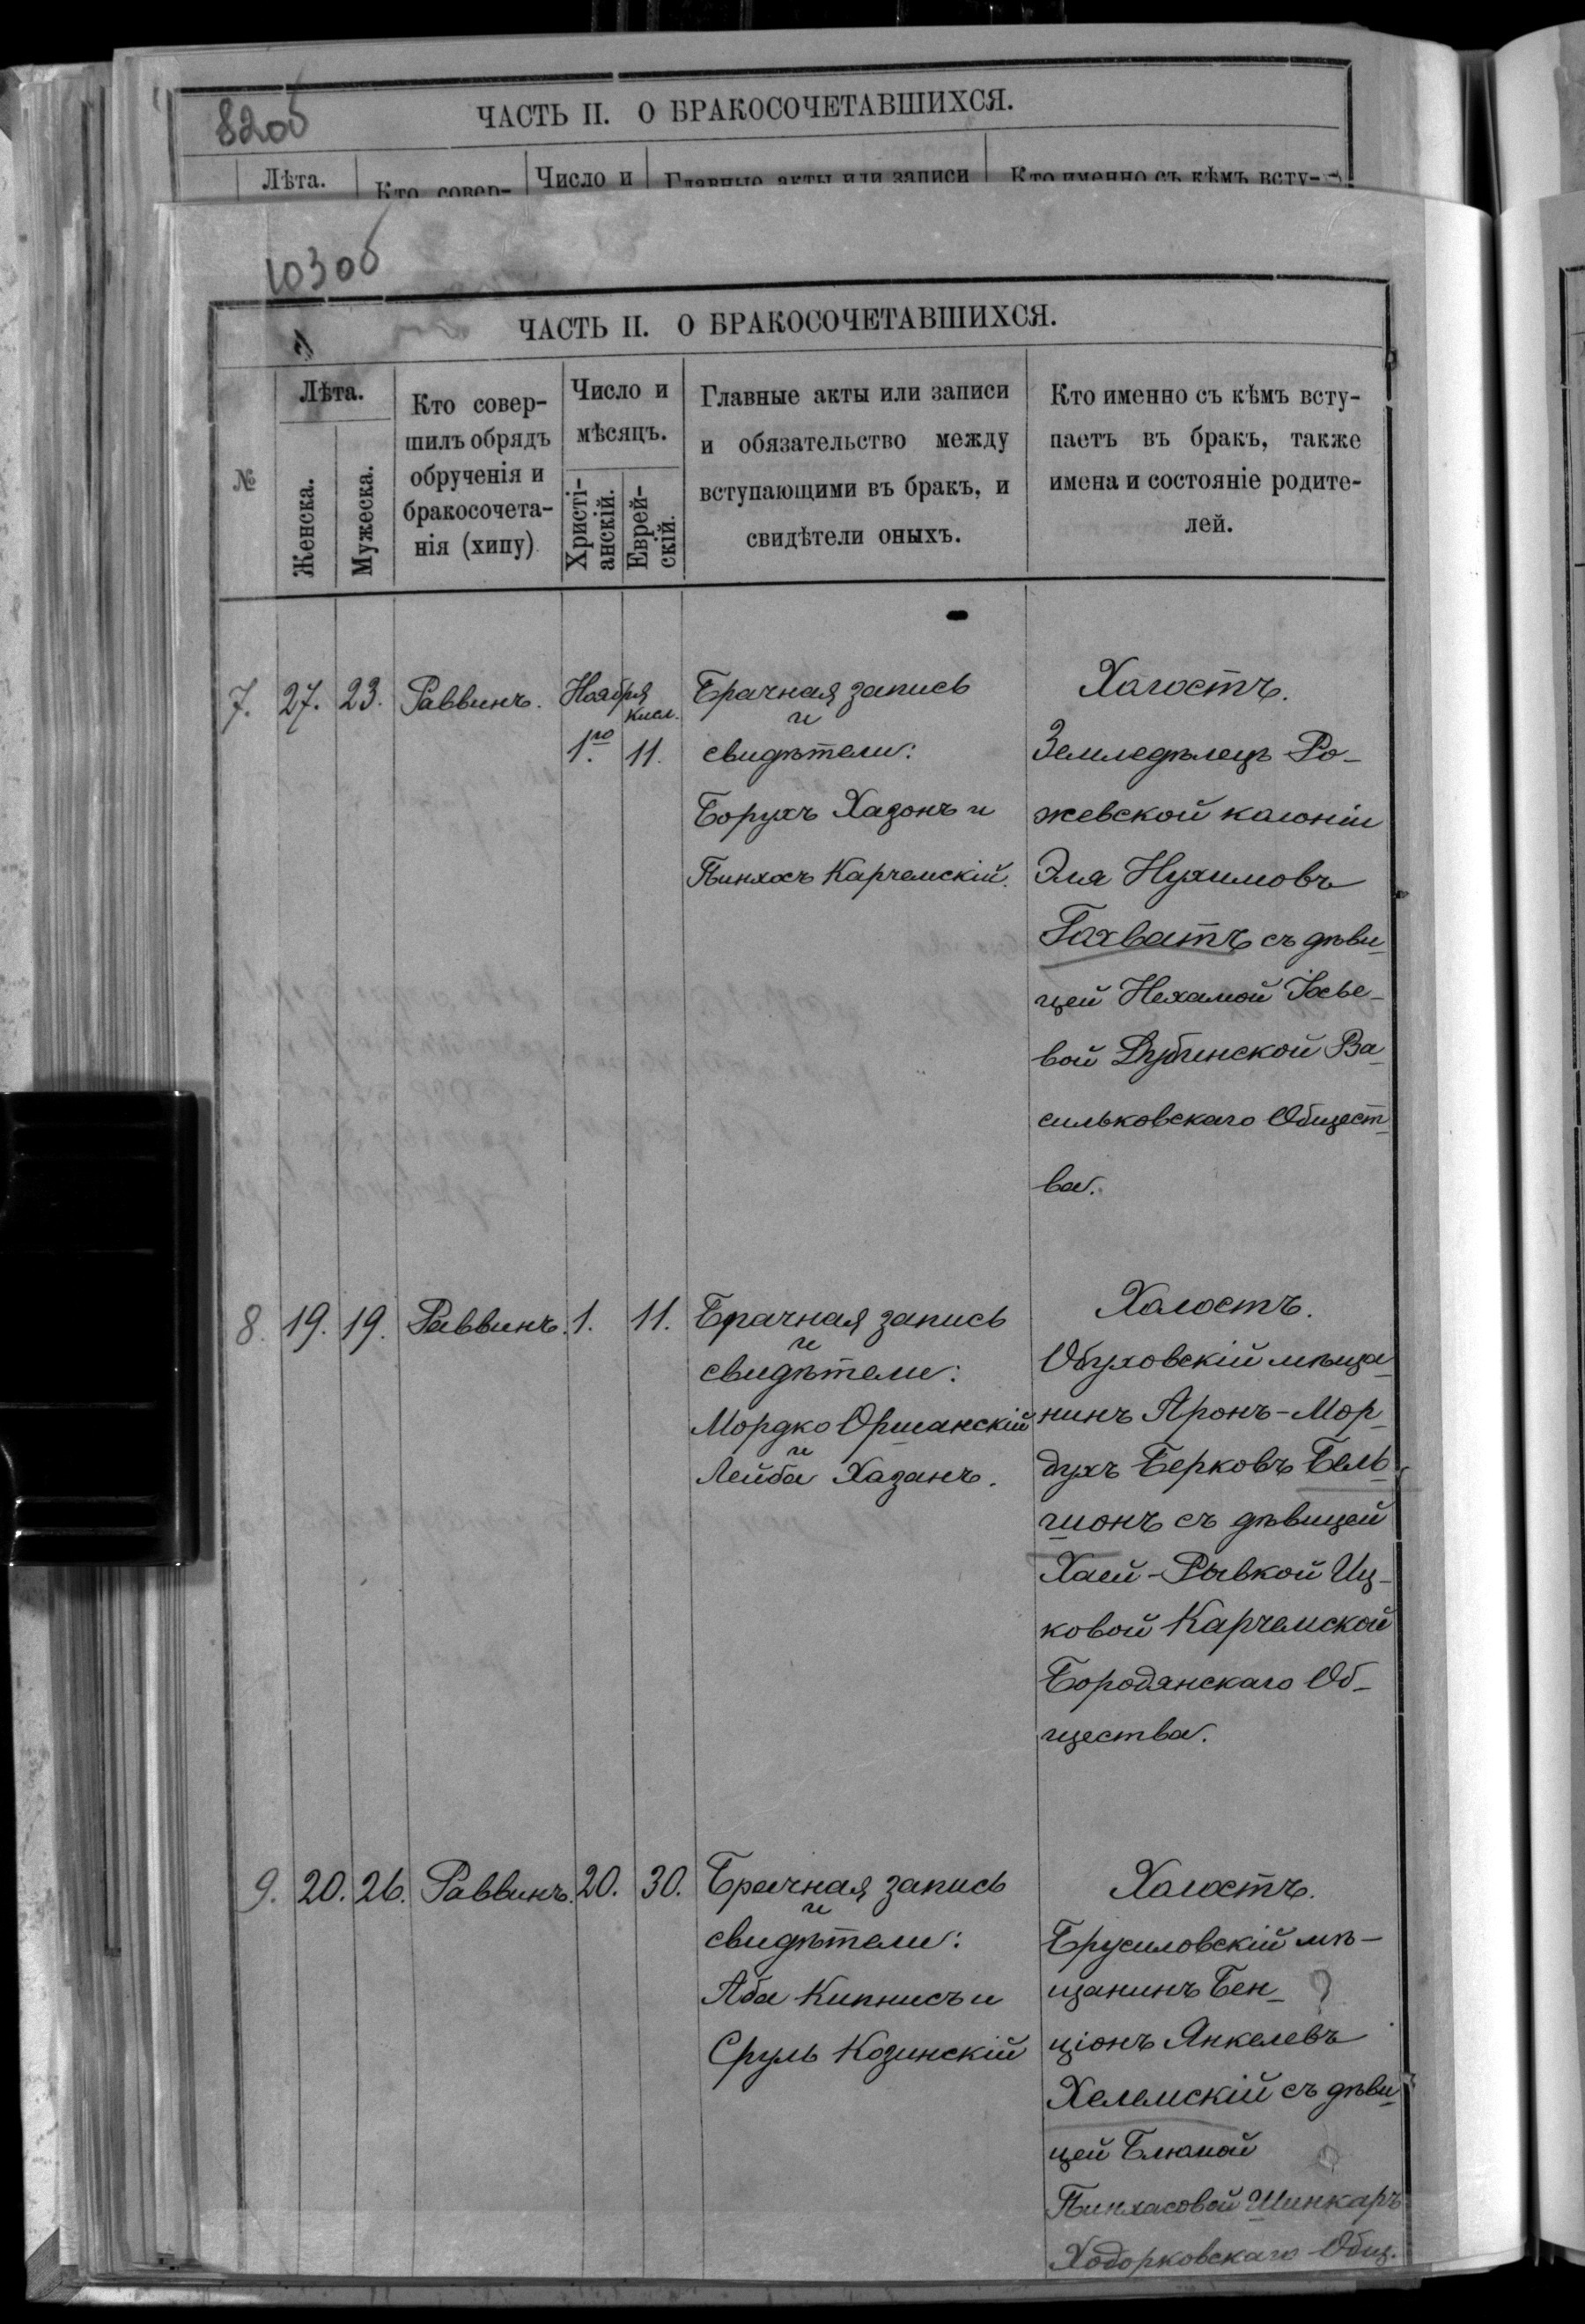 82об
ЧАСТЬ II. О БРАКОСОЧЕТАВШИХСЯ.
Лѣта.
Кто совер-
Число и
Главные акты или записи
Кто именно съ кѣмъ всту-
103об
ЧАСТЬ II. О БРАКОСОЧЕТАВШИХСЯ.
№
Лѣта.
Женска.
Мужеска.
Кто совер-
шилъ обрядъ
обрученія и
бракосочета-
нія (хипу)
Число и
мѣсяцъ.
Христі-
анскій.
Еврей-
скій.
Главные акты или записи
и обязательство между
вступающими въ бракъ, и
свидѣтели оныхъ.
Кто именно съ кѣмъ всту-
паетъ въ бракъ, также
имена и состояніе родите-
лей.
7. 27. 23. Раввинъ.
Ноября
кисл.
1го 11.
Брачная запись
и
свидѣтели:
Борухъ Хазонъ и
Пинхасъ Карчемскій.
Холостъ.
Земледѣлецъ Ро-
жевской колоніи
Эля Нухимовъ
Гохватъ съ дѣви-
цей Нехамой Іосье-
вой Дубинской Ва-
сильковскаго Общест-
ва.
8. 19. 19. Раввинъ. 1. 11.
Брачная запись
и
свидѣтели:
Мордко Оршанскій
и
Лейба Хазанъ.
Холостъ.
Обуховскій мѣща-
нинъ Аронъ-Мор-
духъ Берковъ Бель-
гионъ съ дѣвицей
Хаей-Рывкой Иц-
ковой Карчемской
Бородянскаго Об-
щества.
9. 20. 26. Раввинъ. 20. 30.
Брачная запись
и
свидѣтели:
Аба Кипнисъ и
Сруль Козинскій
Холостъ.
Брусиловскій мѣ-
щанинъ Бен- ?
ціонъ Янкелевъ
Хелемскій съ дѣви-
цей Блюмой
Пинхасовой Шинкаръ
Ходорковскаго Общ.